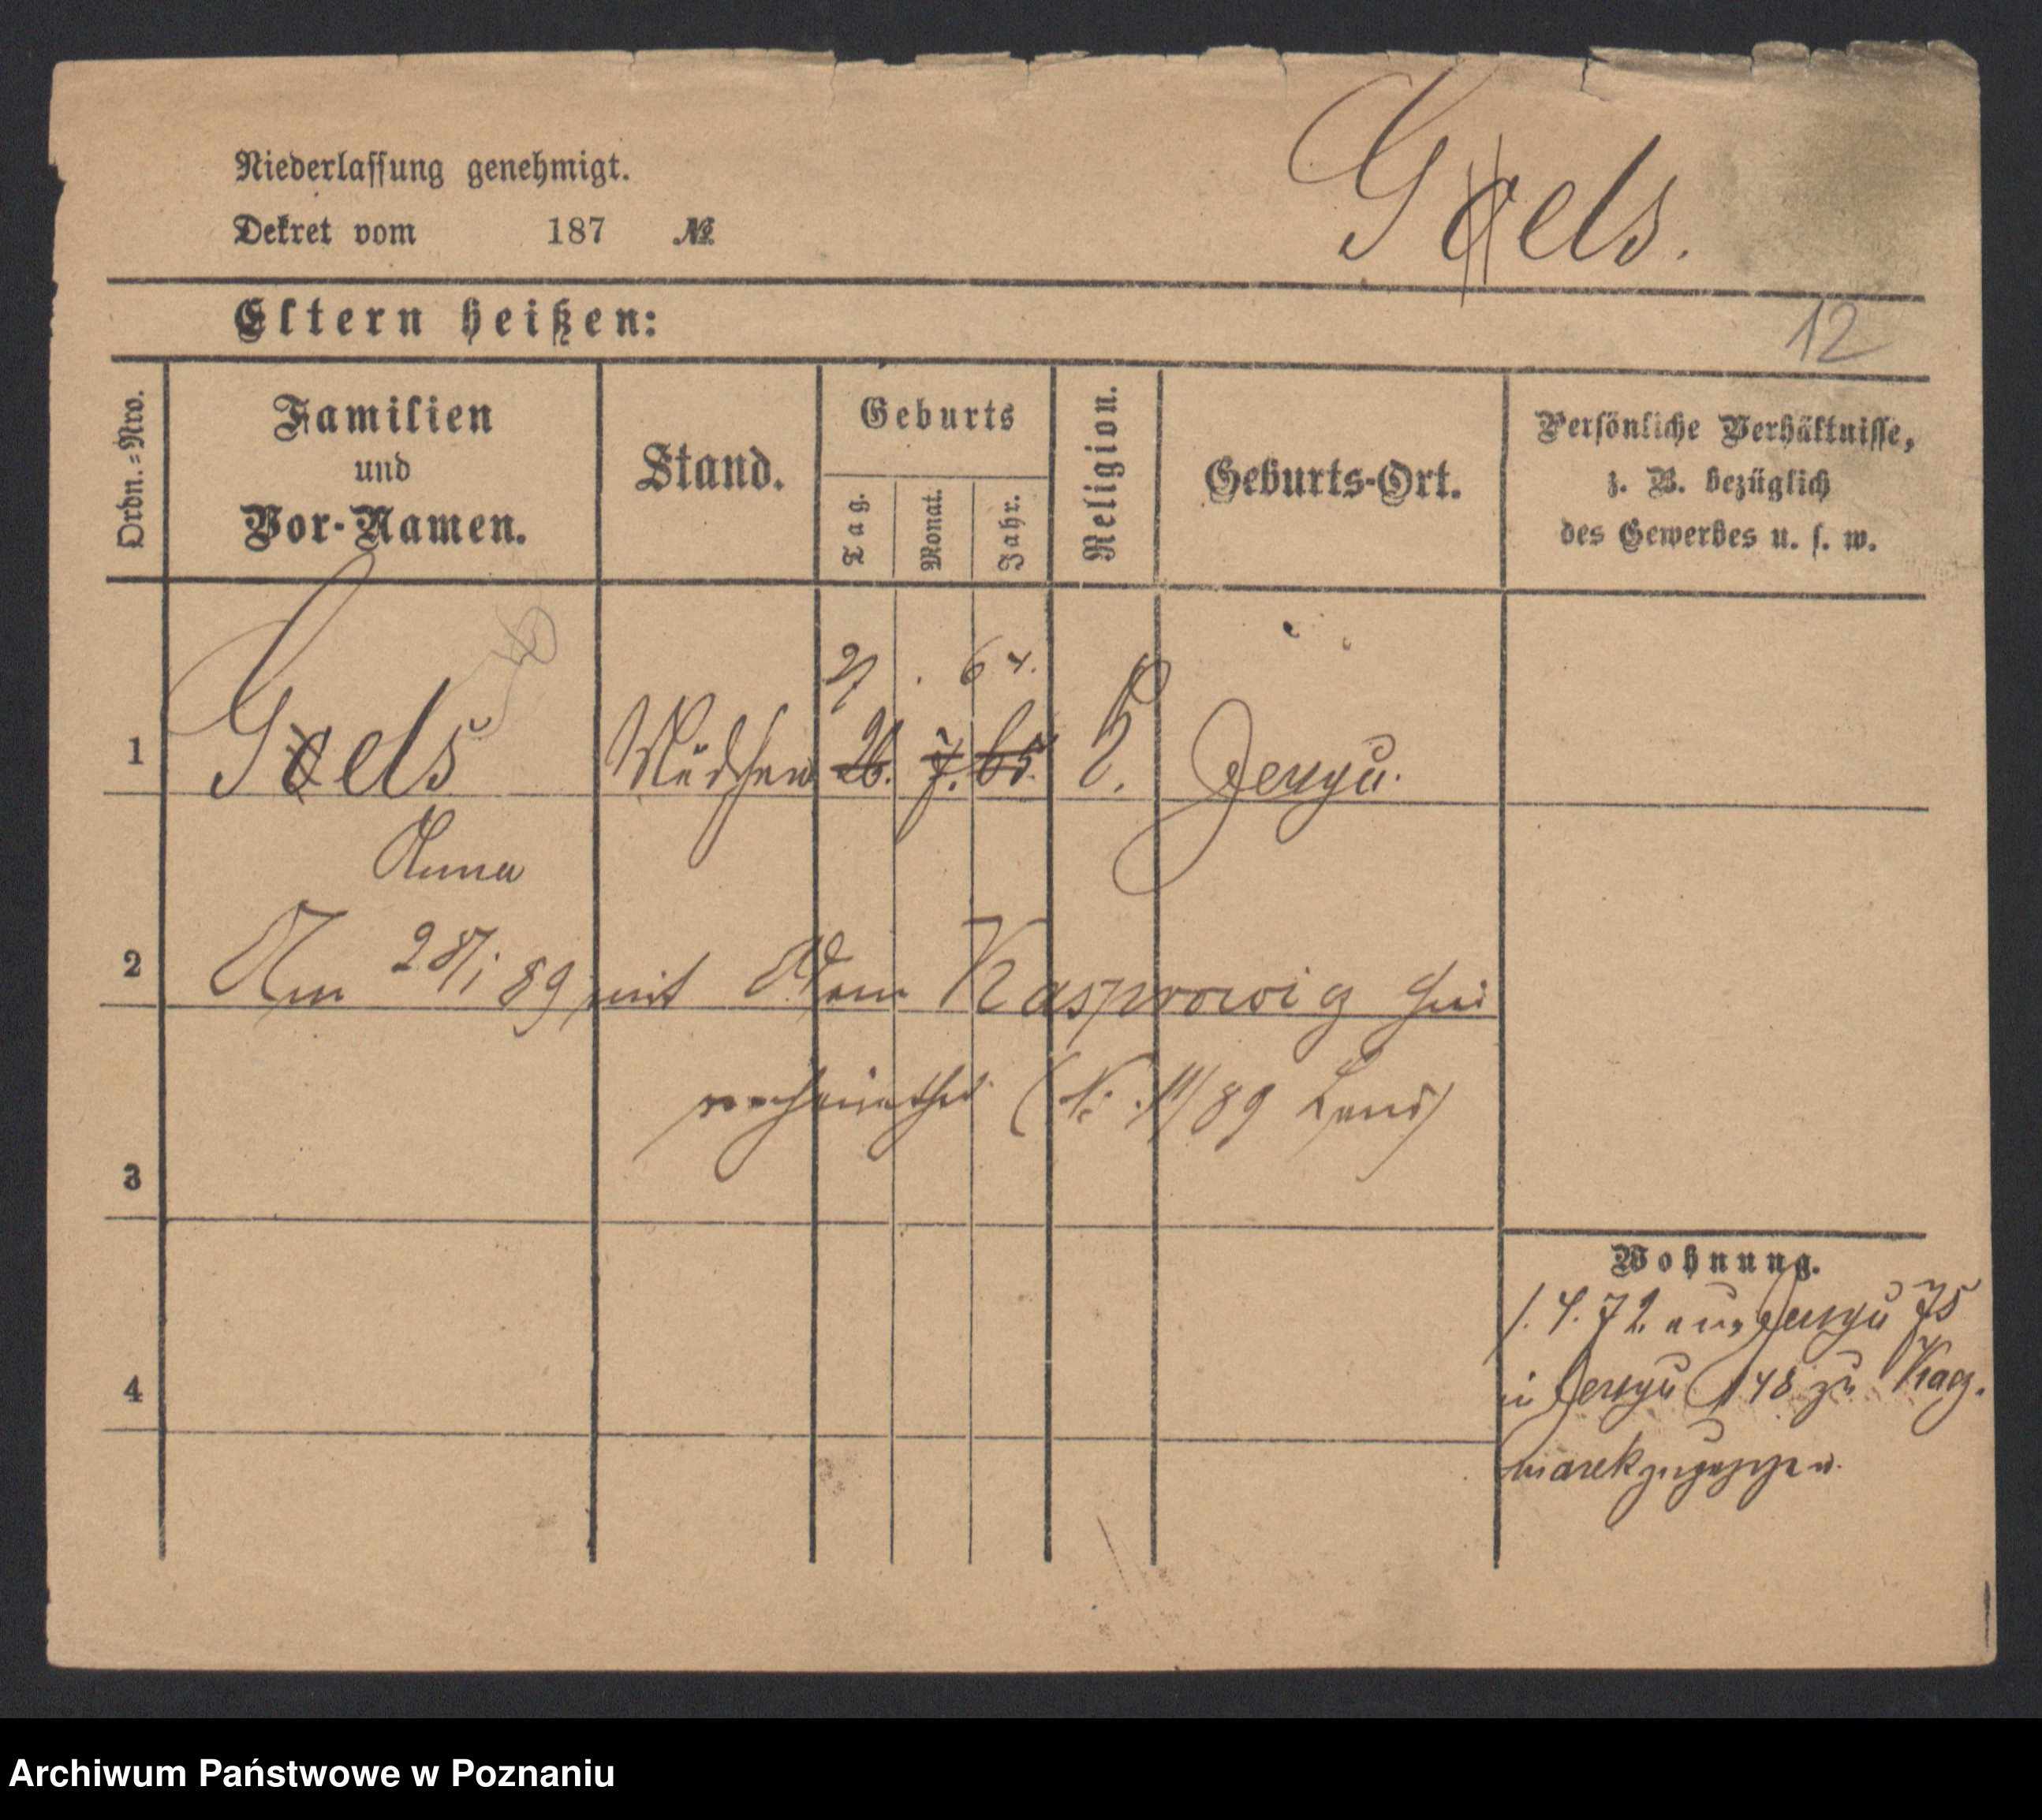 Niederlassung genehmigt.
Dekret vom 187 №
Goels.
Eltern heißen:
12
Ordn.=Nro.
Familien
und
Vor-Namen.
Stand.
Geburts
Tag.
Monat.
Jahr.
Religion.
Geburts-Ort.
Persönliche Verhältnisse,
z. B. bezüglich
des Gewerbes u. s. w.
27 . 64.
1 Goels Mädchen 26. 7. 65. k. Jersyc.
Anna
2 Am 28/1 89 mit Adam Kasprowicz hier
verheirathet (N. 11/89 Land)
3
Wohnung.
1. 4. 72. aus 75
in 148 zu
marek zugezogen.
4
Archiwum Państwowe w Poznaniu